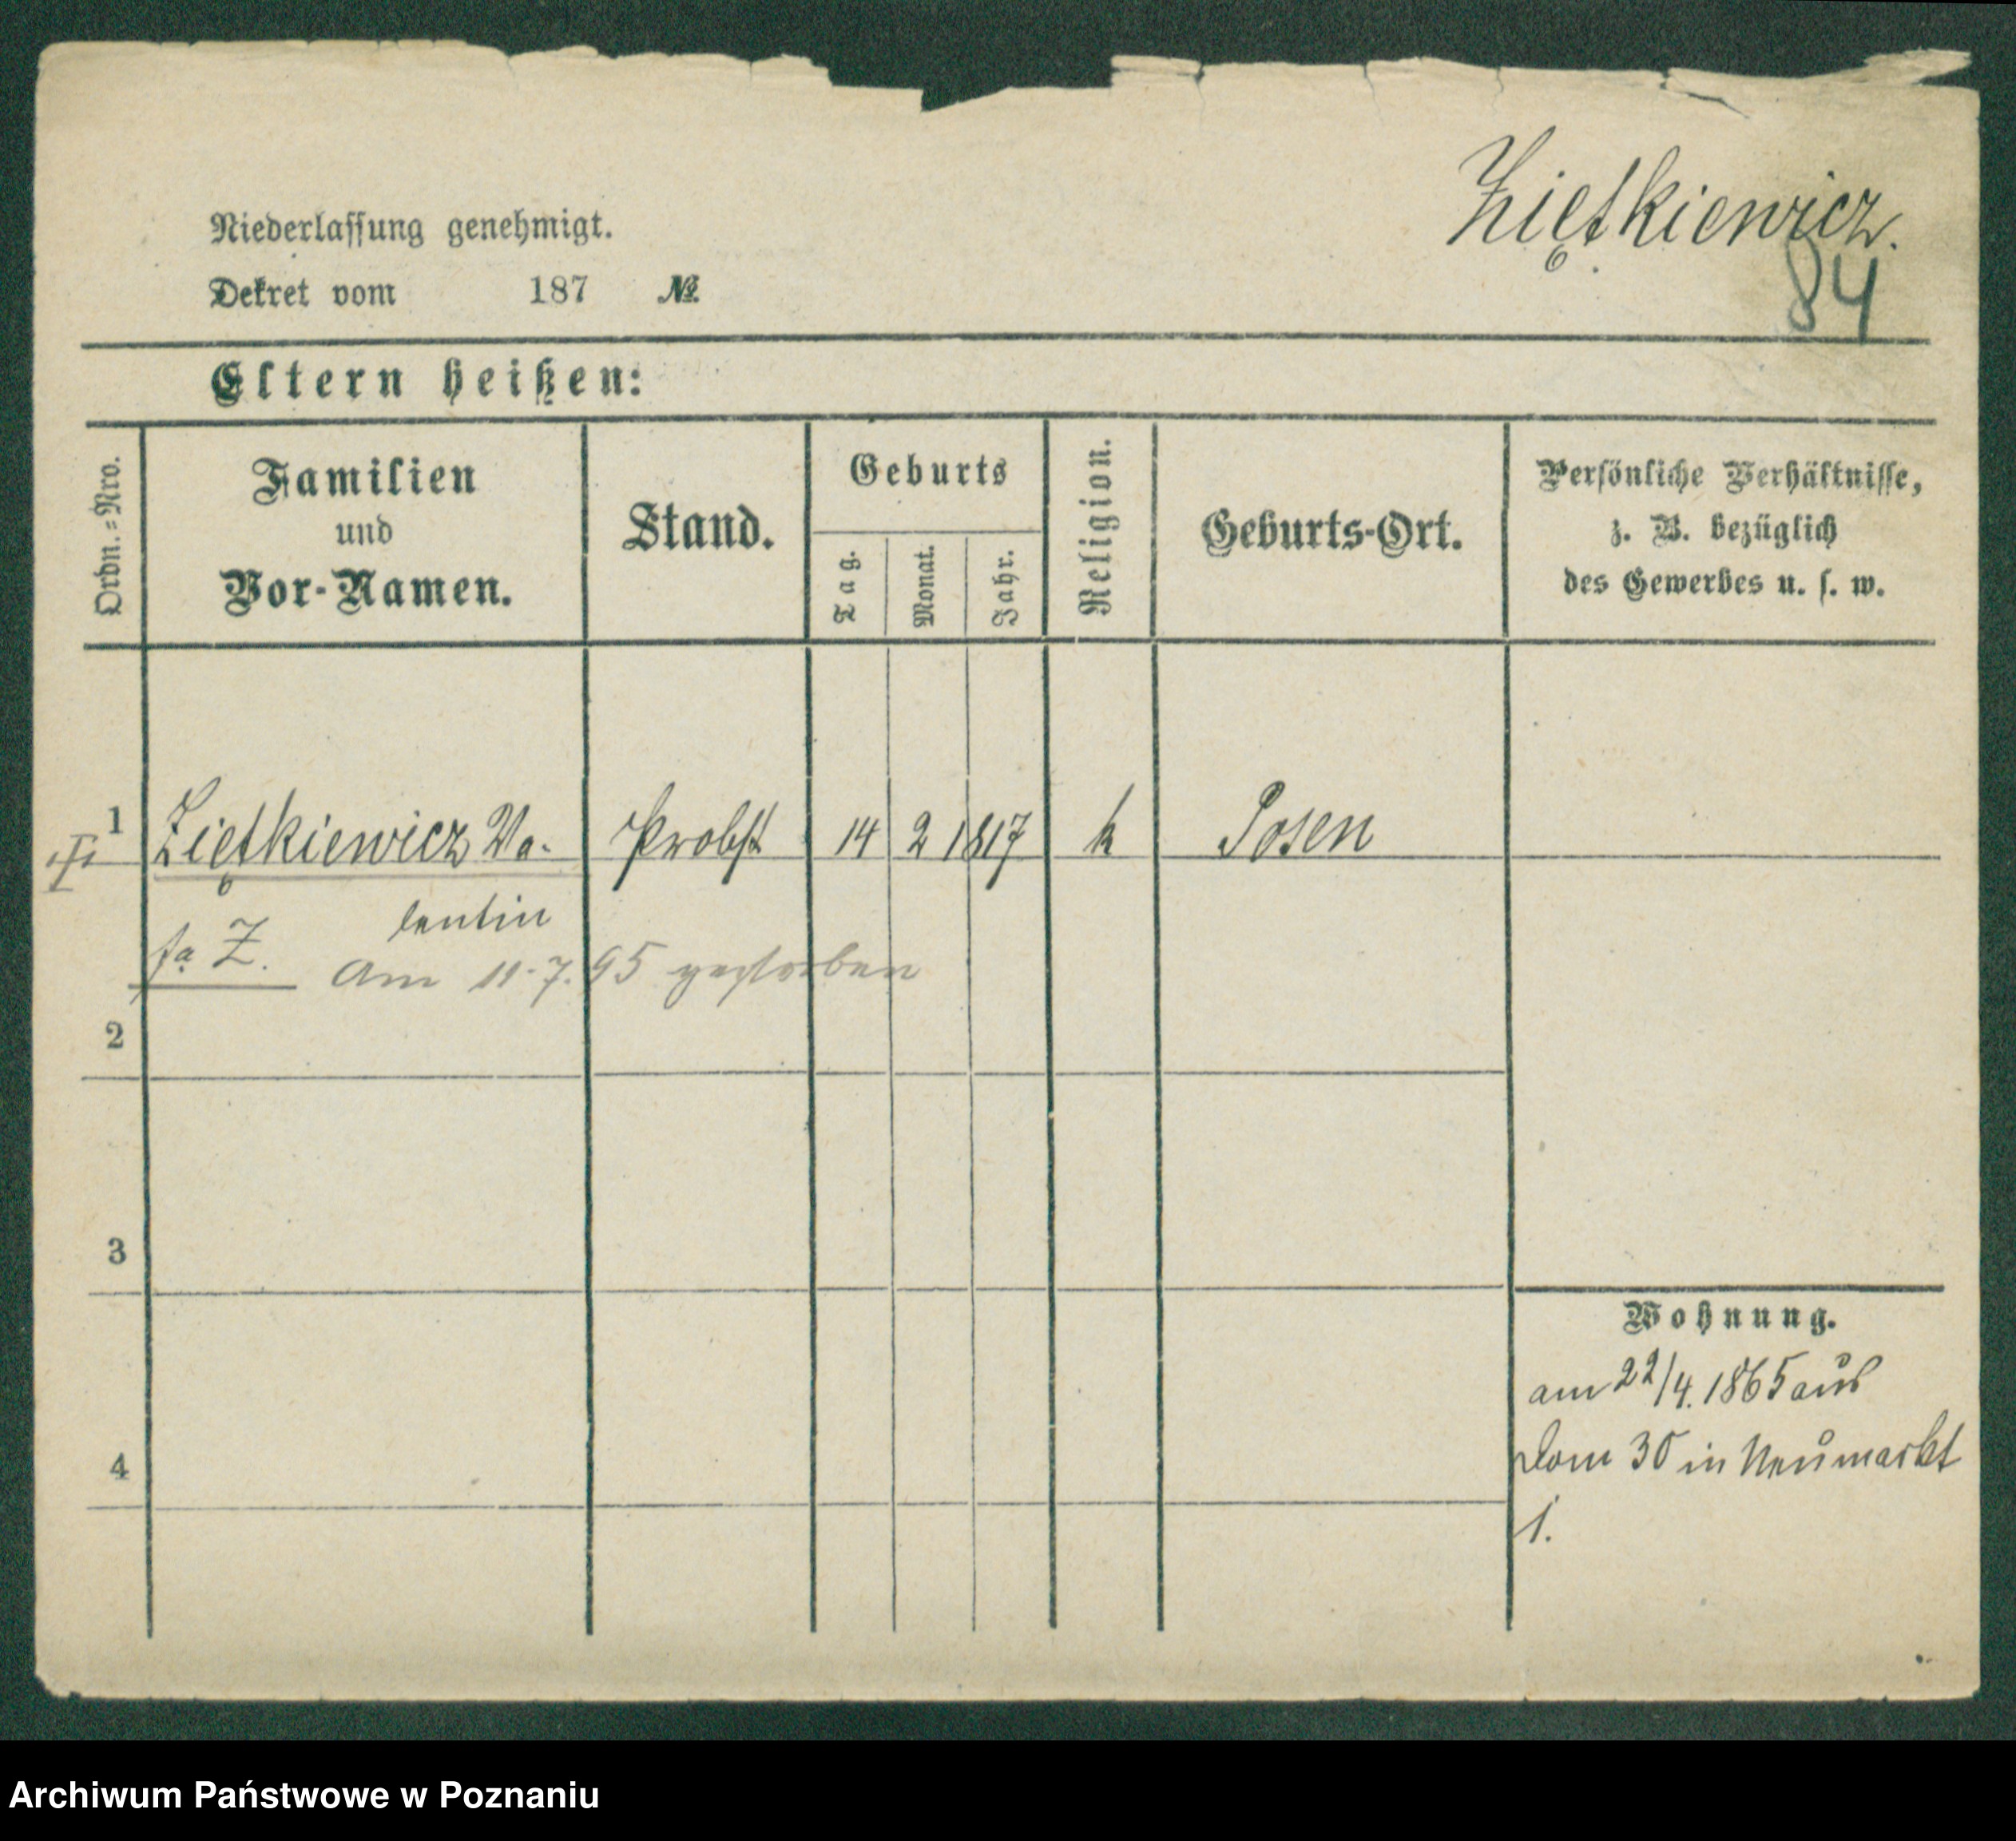 Ziętkiewicz.
84
Niederlassung genehmigt.
Dekret vom 187 №
Eltern heißen:
Ordn.=Nro.
Familien
und
Vor-Namen.
Stand.
Geburts
Tag.
Monat.
Jahr.
Religion.
Geburts-Ort.
Persönliche Verhältnisse,
z. B. bezüglich
des Gewerbes u. s. w.
1 Ziętkiewicz Va- Probst 14 2 1817 k Posen
lentin
fa Z. Am 11.7.95 gestorben
2
3
4
Wohnung.
am 22/4. 1865 aus
Dom 30 in Neumarkt
1.
Archiwum Państwowe w Poznaniu